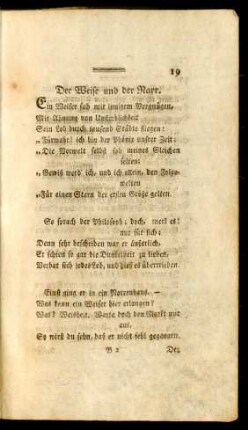 19
Der Weise und der Narr.
Ein Weiser sah mit innrem Vergnügen,
Mit Ahnung von Unsterblichkeit
Sein Lob durch tausend Städte fliegen:
„Fürwahr! ich bin der Phönix unsrer Zeit:
„Die Vorwelt selbst sah meines Gleichen
selten;
„Gewiß werd' ich, und ich allein, den Folge-
welten
„Für einen Stern der ersten Größe gelten.
So sprach der Philosoph; doch, merk es!
nur für sich;
Denn sehr bescheiden war er äußerlich.
Er schien so gar die Dunkelheit zu lieben,
Verbat sich jedes Lob, und hieß es übertrieben
Einst ging er in ein Narrenhaus. —
Was kann ein Weiser hier erlangen?
Was? Weisheit. Warte doch den Ausgang nur
aus.
So wirst du sehn, daß er nicht fehl gegangen.
B 2
Der